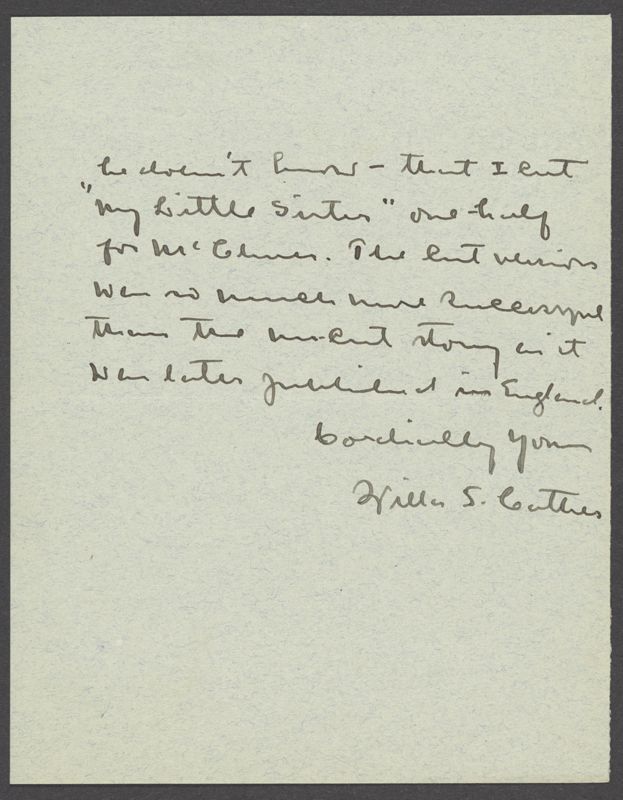 he doesn't know – that I cut
"My Little Sister" one-half
for McClures. The cut version
was so much more successful
than the un-cut story as it
was later published in England.
Cordially Yours
Willa S. Cather